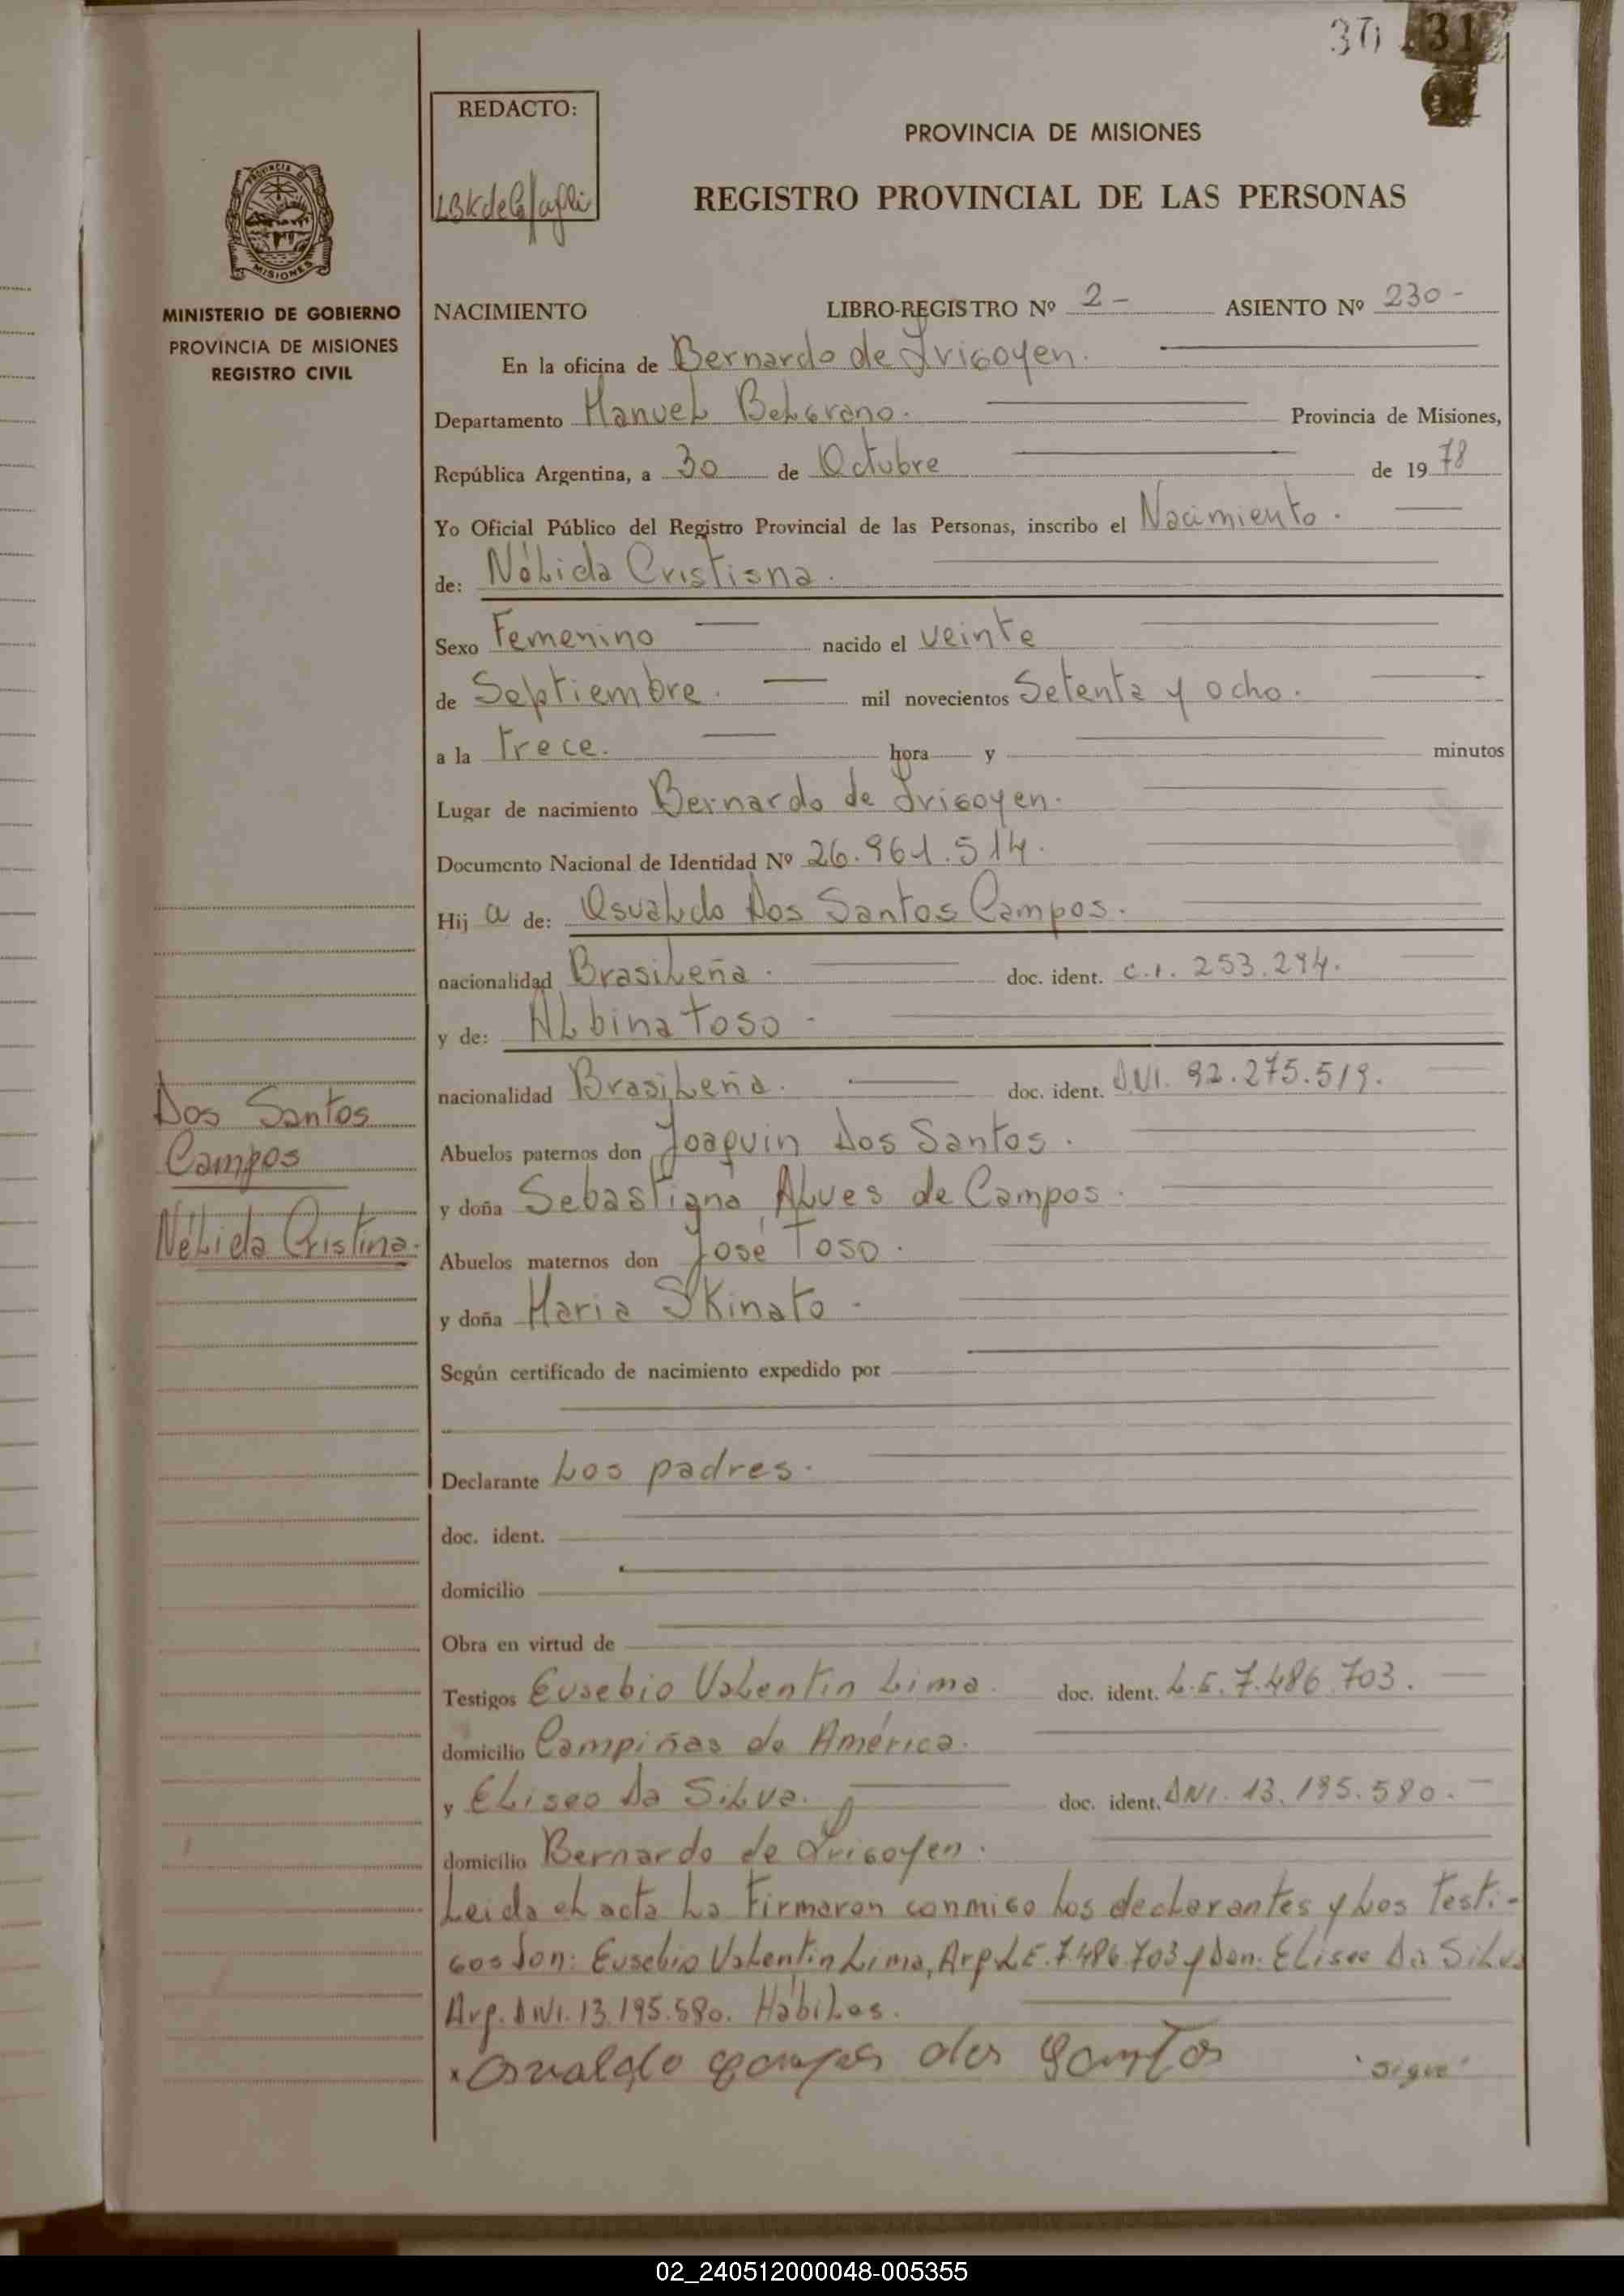 31
REDACTO:
PROVINCIA DE MISIONES
REGISTRO PROVINCIAL DE LAS PERSONAS
PROVINCIA DE
MISIONES
MINISTERIO DE GOBIERNO
PROVINCIA DE MISIONES
REGISTRO CIVIL
NACIMIENTO LIBRO-REGISTRO Nº 2- ASIENTO Nº 230-
En la oficina de Bernardo de Irigoyen.
Departamento Manuel Belgrano. Provincia de Misiones,
República Argentina, a 30 de Octubre de 1978
Yo Oficial Público del Registro Provincial de las Personas, inscribo el Nacimiento.
de: Nélida Cristiana.
Sexo Femenino nacido el veinte
de Septiembre. mil novecientos Setenta y ocho.
a la Trece. hora y minutos
Lugar de nacimiento Bernardo de Irigoyen.
Documento Nacional de Identidad Nº 26.961.514.
Hij a de: Osvaldo Dos Santos Campos.
nacionalidad Brasileña. doc. ident. C.I. 253.294.
y de: Albina Toso.
nacionalidad Brasileña. doc. ident. DNI. 92.275.519.
Dos Santos
Campos
Nélida Cristina.
Abuelos paternos don Joaquin Dos Santos.
y doña Sebastiana Alves de Campos.
Abuelos maternos don José Toso.
y doña Maria Skinato.
Según certificado de nacimiento expedido por
Declarante Los padres.
doc. ident.
domicilio
Obra en virtud de
Testigos Eusebio Valentin Lima. doc. ident. L.E. 7.486.703.
domicilio Campiñas de América.
y Eliseo Da Silva. doc. ident. DNI. 13.195.580.
domicilio Bernardo de Irigoyen.
Leida el acta la Firmaron conmigo los declarantes y los Testi-
gos don: Eusebio Valentin Lima, Arg. L.E. 7.486.703 y Don: Eliseo Da Silva
Arg. DNI. 13.195.580. Hábiles.
Osvaldo campos dos Santos "sigue"
02_240512000048-005355